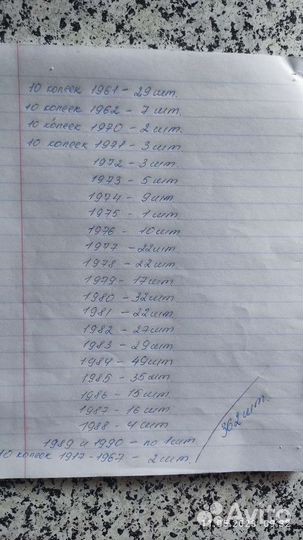 10 копеек 1961 - 29 шт.
10 копеек 1962 - 7 шт.
10 копеек 1970 - 2 шт.
10 копеек 1971 - 3 шт.
1972 - 3 шт.
1973 - 5 шт
1974 - 9 шт.
1975 - 1 шт
1976 - 10 шт
1977 - 22 шт.
1978 - 22 шт.
1979 - 17 шт
1980 - 32 шт
1981 - 22 шт.
1982 - 27 шт
1983 - 29 шт
1984 - 49 шт
1985 - 35 шт
1986 - 15 шт.
1987 - 16 шт.
1988 - 4 шт
1989 и 1990 - по 1 шт.
10 копеек 1917-1967 - 2 шт.
362 шт.
Avito